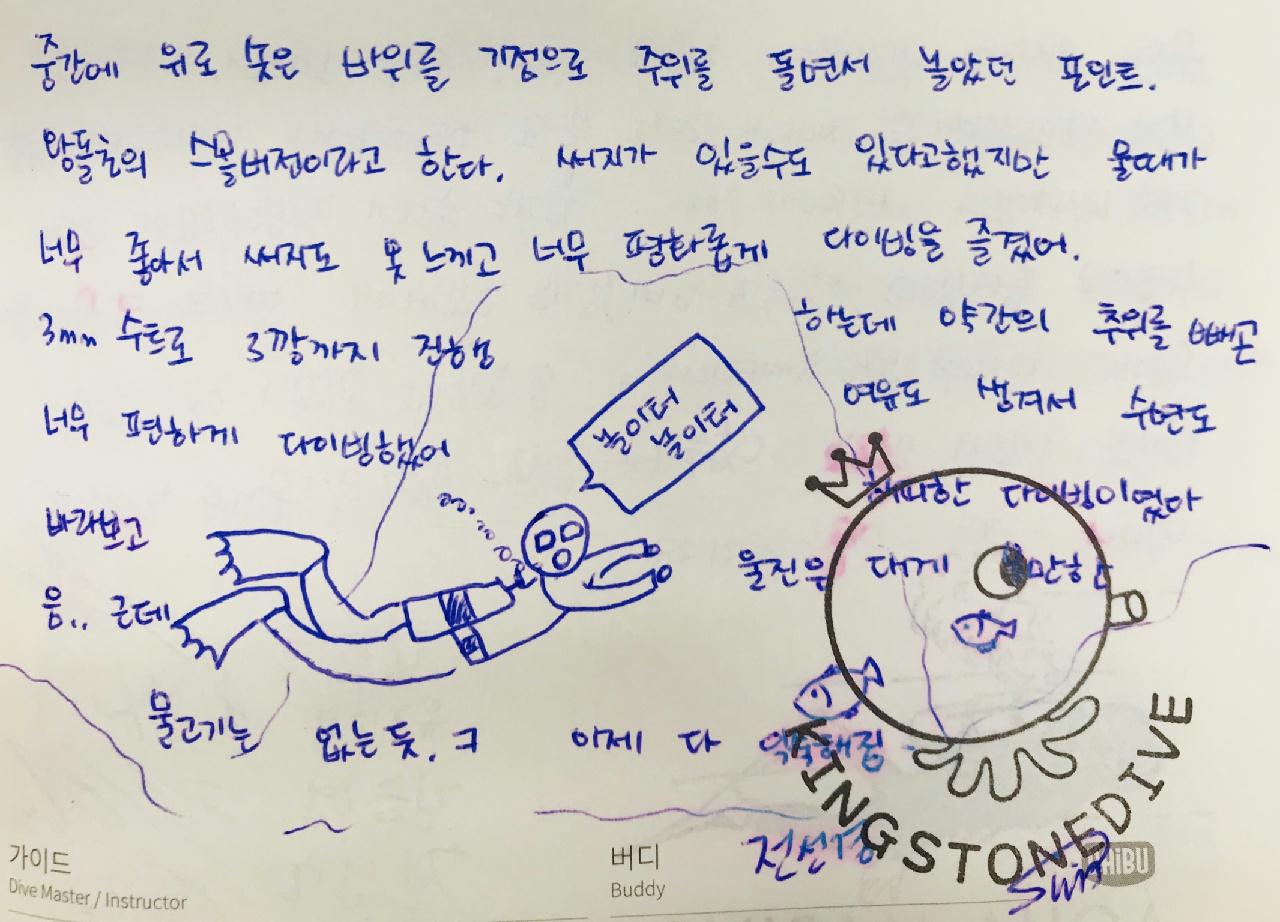 중간에 위로 솟은 바위를 기점으로 주위를 돌면서 놀았던 포인트.
왕돌초의 스몰버전이라고 한다. 써지가 있을수도 있다고했지만 물때가
너무 좋아서 써지도 못느끼고 너무 평화롭게 다이빙을 즐겼어.
3mm 수트로 3깡까지 진행 하는데 약간의 추위를 빼곤
너무 편하게 다이빙했어 여유도 생겨서 수면도
놀이터
놀이터
바라보고 해피한 다이빙이였아
음.. 근데 울진은 대게 만한
물고기는 없는듯.ㅋ 이제 다 익숙해짐
KINGSTONEDIVE
가이드
Dive Master / Instructor
버디
Buddy
전선경